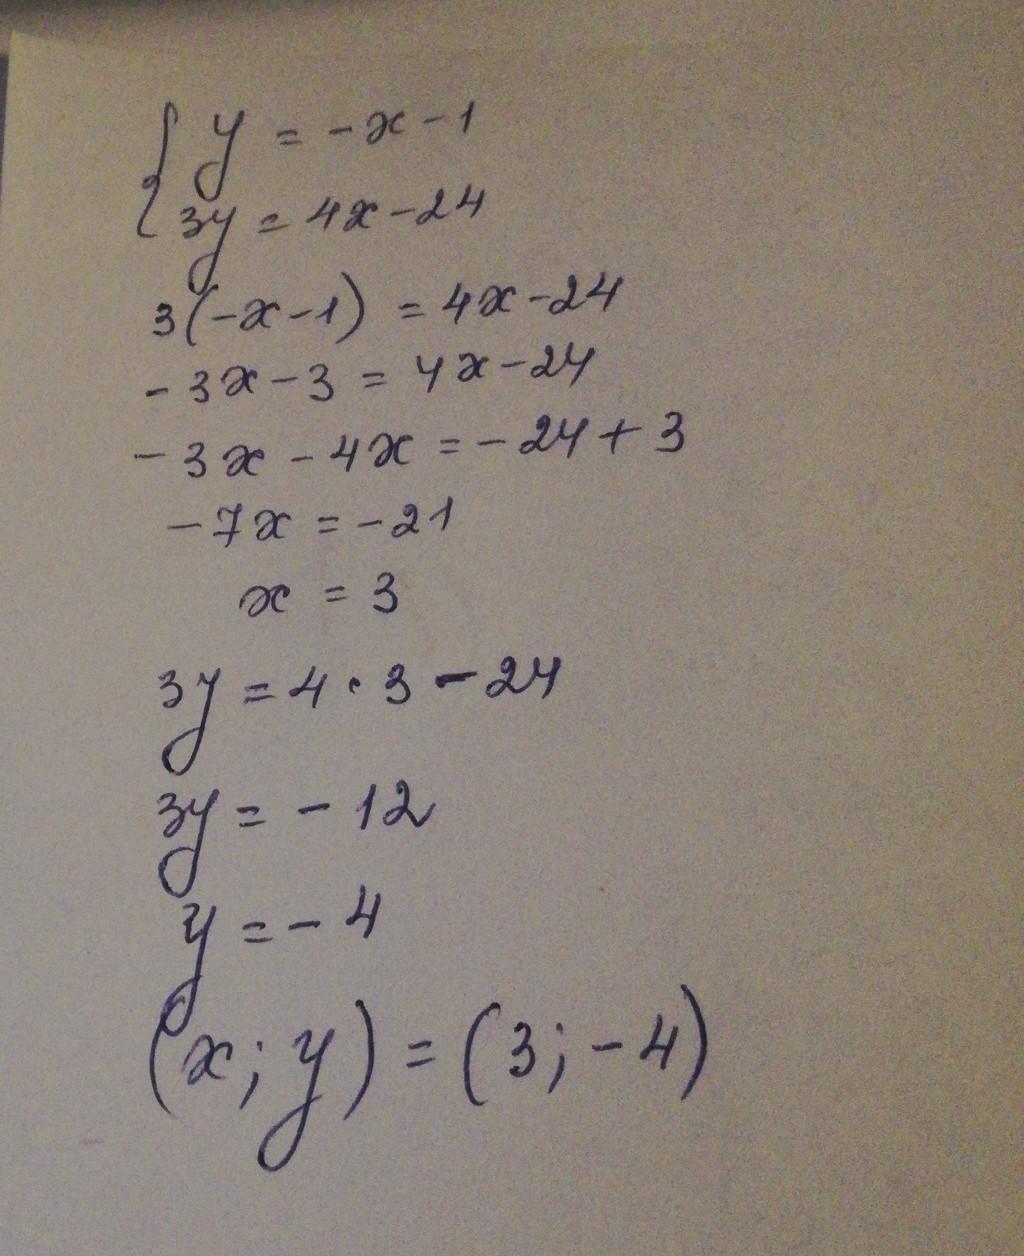 { y = -x - 1
3y = 4x - 24
3(-x - 1) = 4x - 24
-3x - 3 = 4x - 24
-3x - 4x = -24 + 3
-7x = -21
x = 3
3y = 4 · 3 - 24
3y = -12
y = -4
(x; y) = (3; -4)